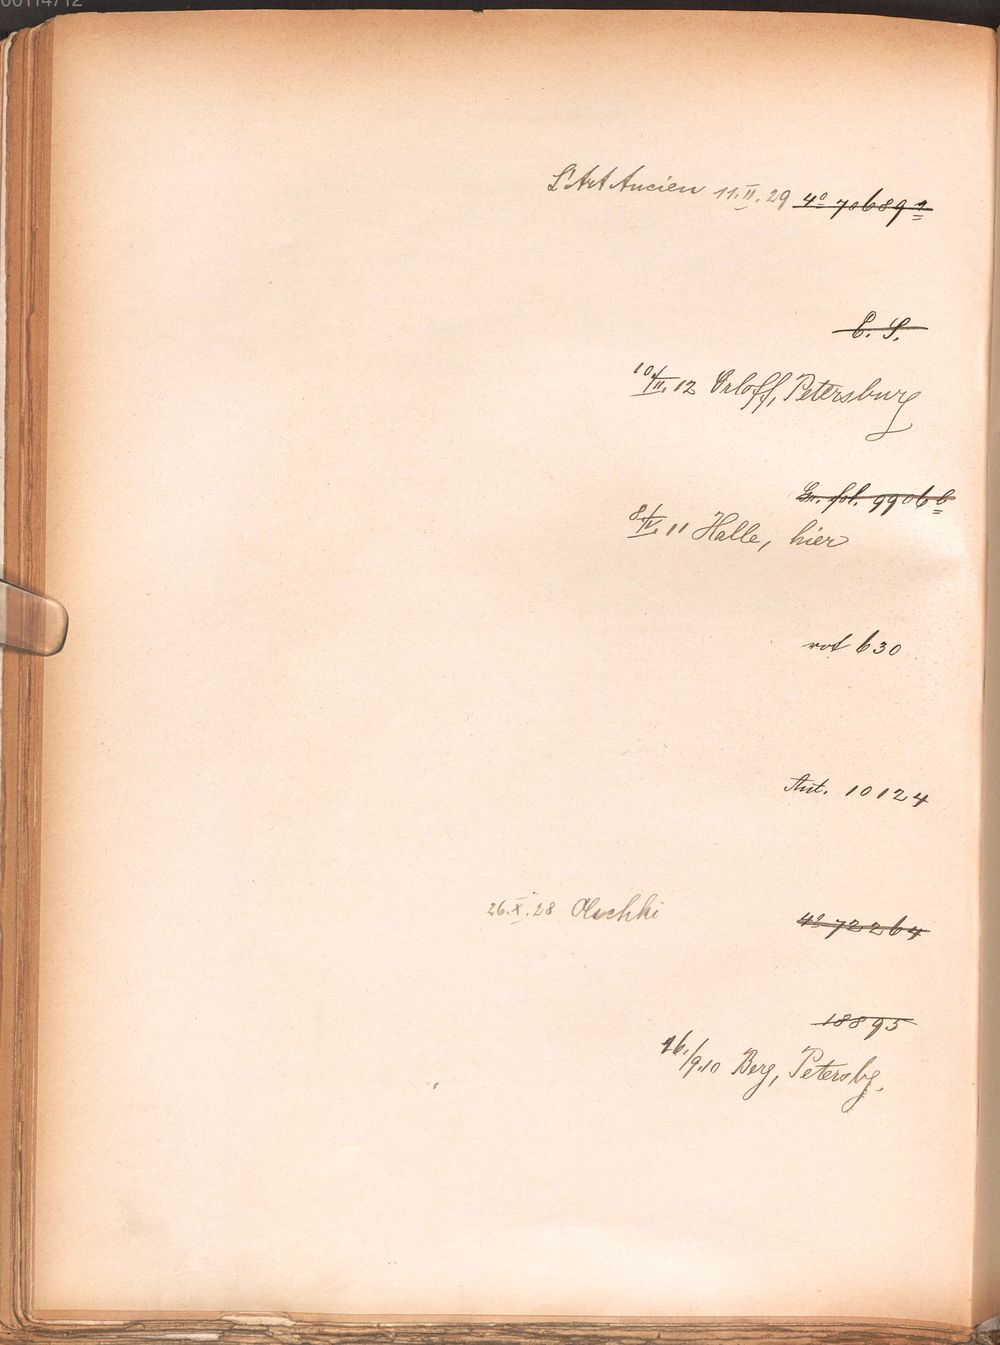 00114712
L'Art Ancien 11.II.29 4º 70689 a
C. S.
10/II.12 Orloff, Petersburg
Gr. fol. 9906 b
8/IV.11 Halle, hier
rot 630
Ant. 10124
26.X.28 Olschki
4º 72264
18895
26./9.10 Berg, Petersbg.